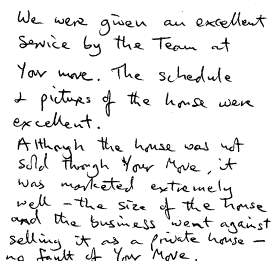 We were given an excellent
service by the Team at
Your move. The schedule
& pictures of the house were
excellent.
Although the house was not
sold through Your Move, it
was marketed extremely
well – the size of the house
and the business went against
selling it as a private house –
no fault of Your Move.